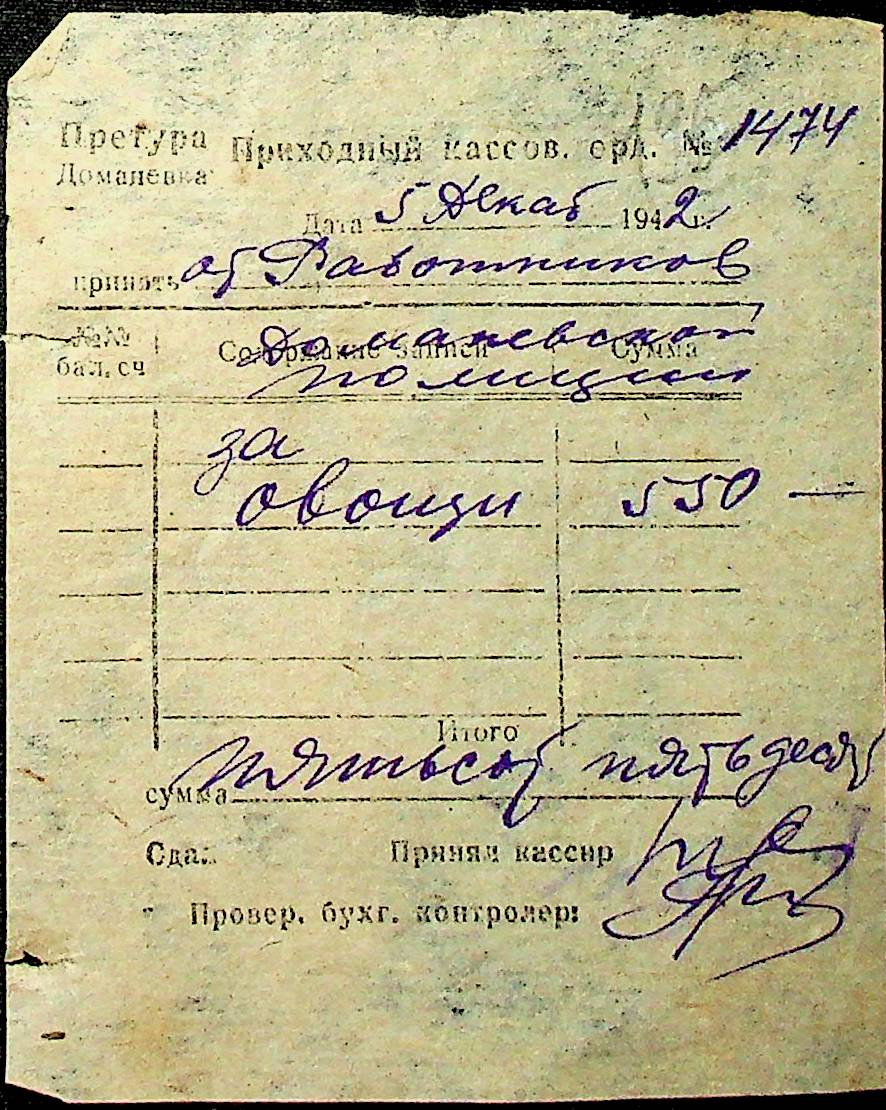 Претура Приходный кассов. орд. № 1474
Доманевка
Дата 5 Декаб 1942 г.
принять от Работников
Доманевской
№№ Содержание записи Сумма
бал. сч
полиции
за
овощи 550 —
Итого
сумма пятьсот пятьдесят
Сдал Принял кассир
Провер. бухг. контролер: